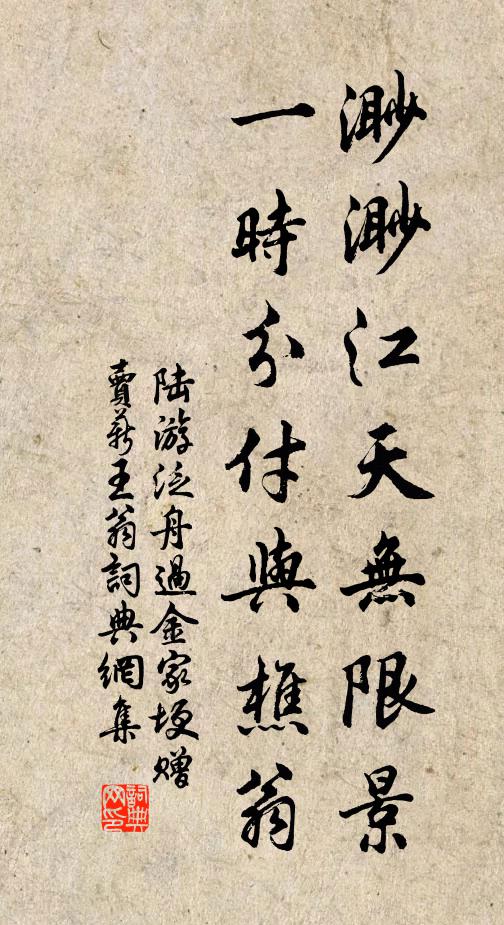 渺渺江天無限景
一時分付與樵翁
陸游泛舟過金家埂贈
賣薪王翁詞典網集
詞典
网印